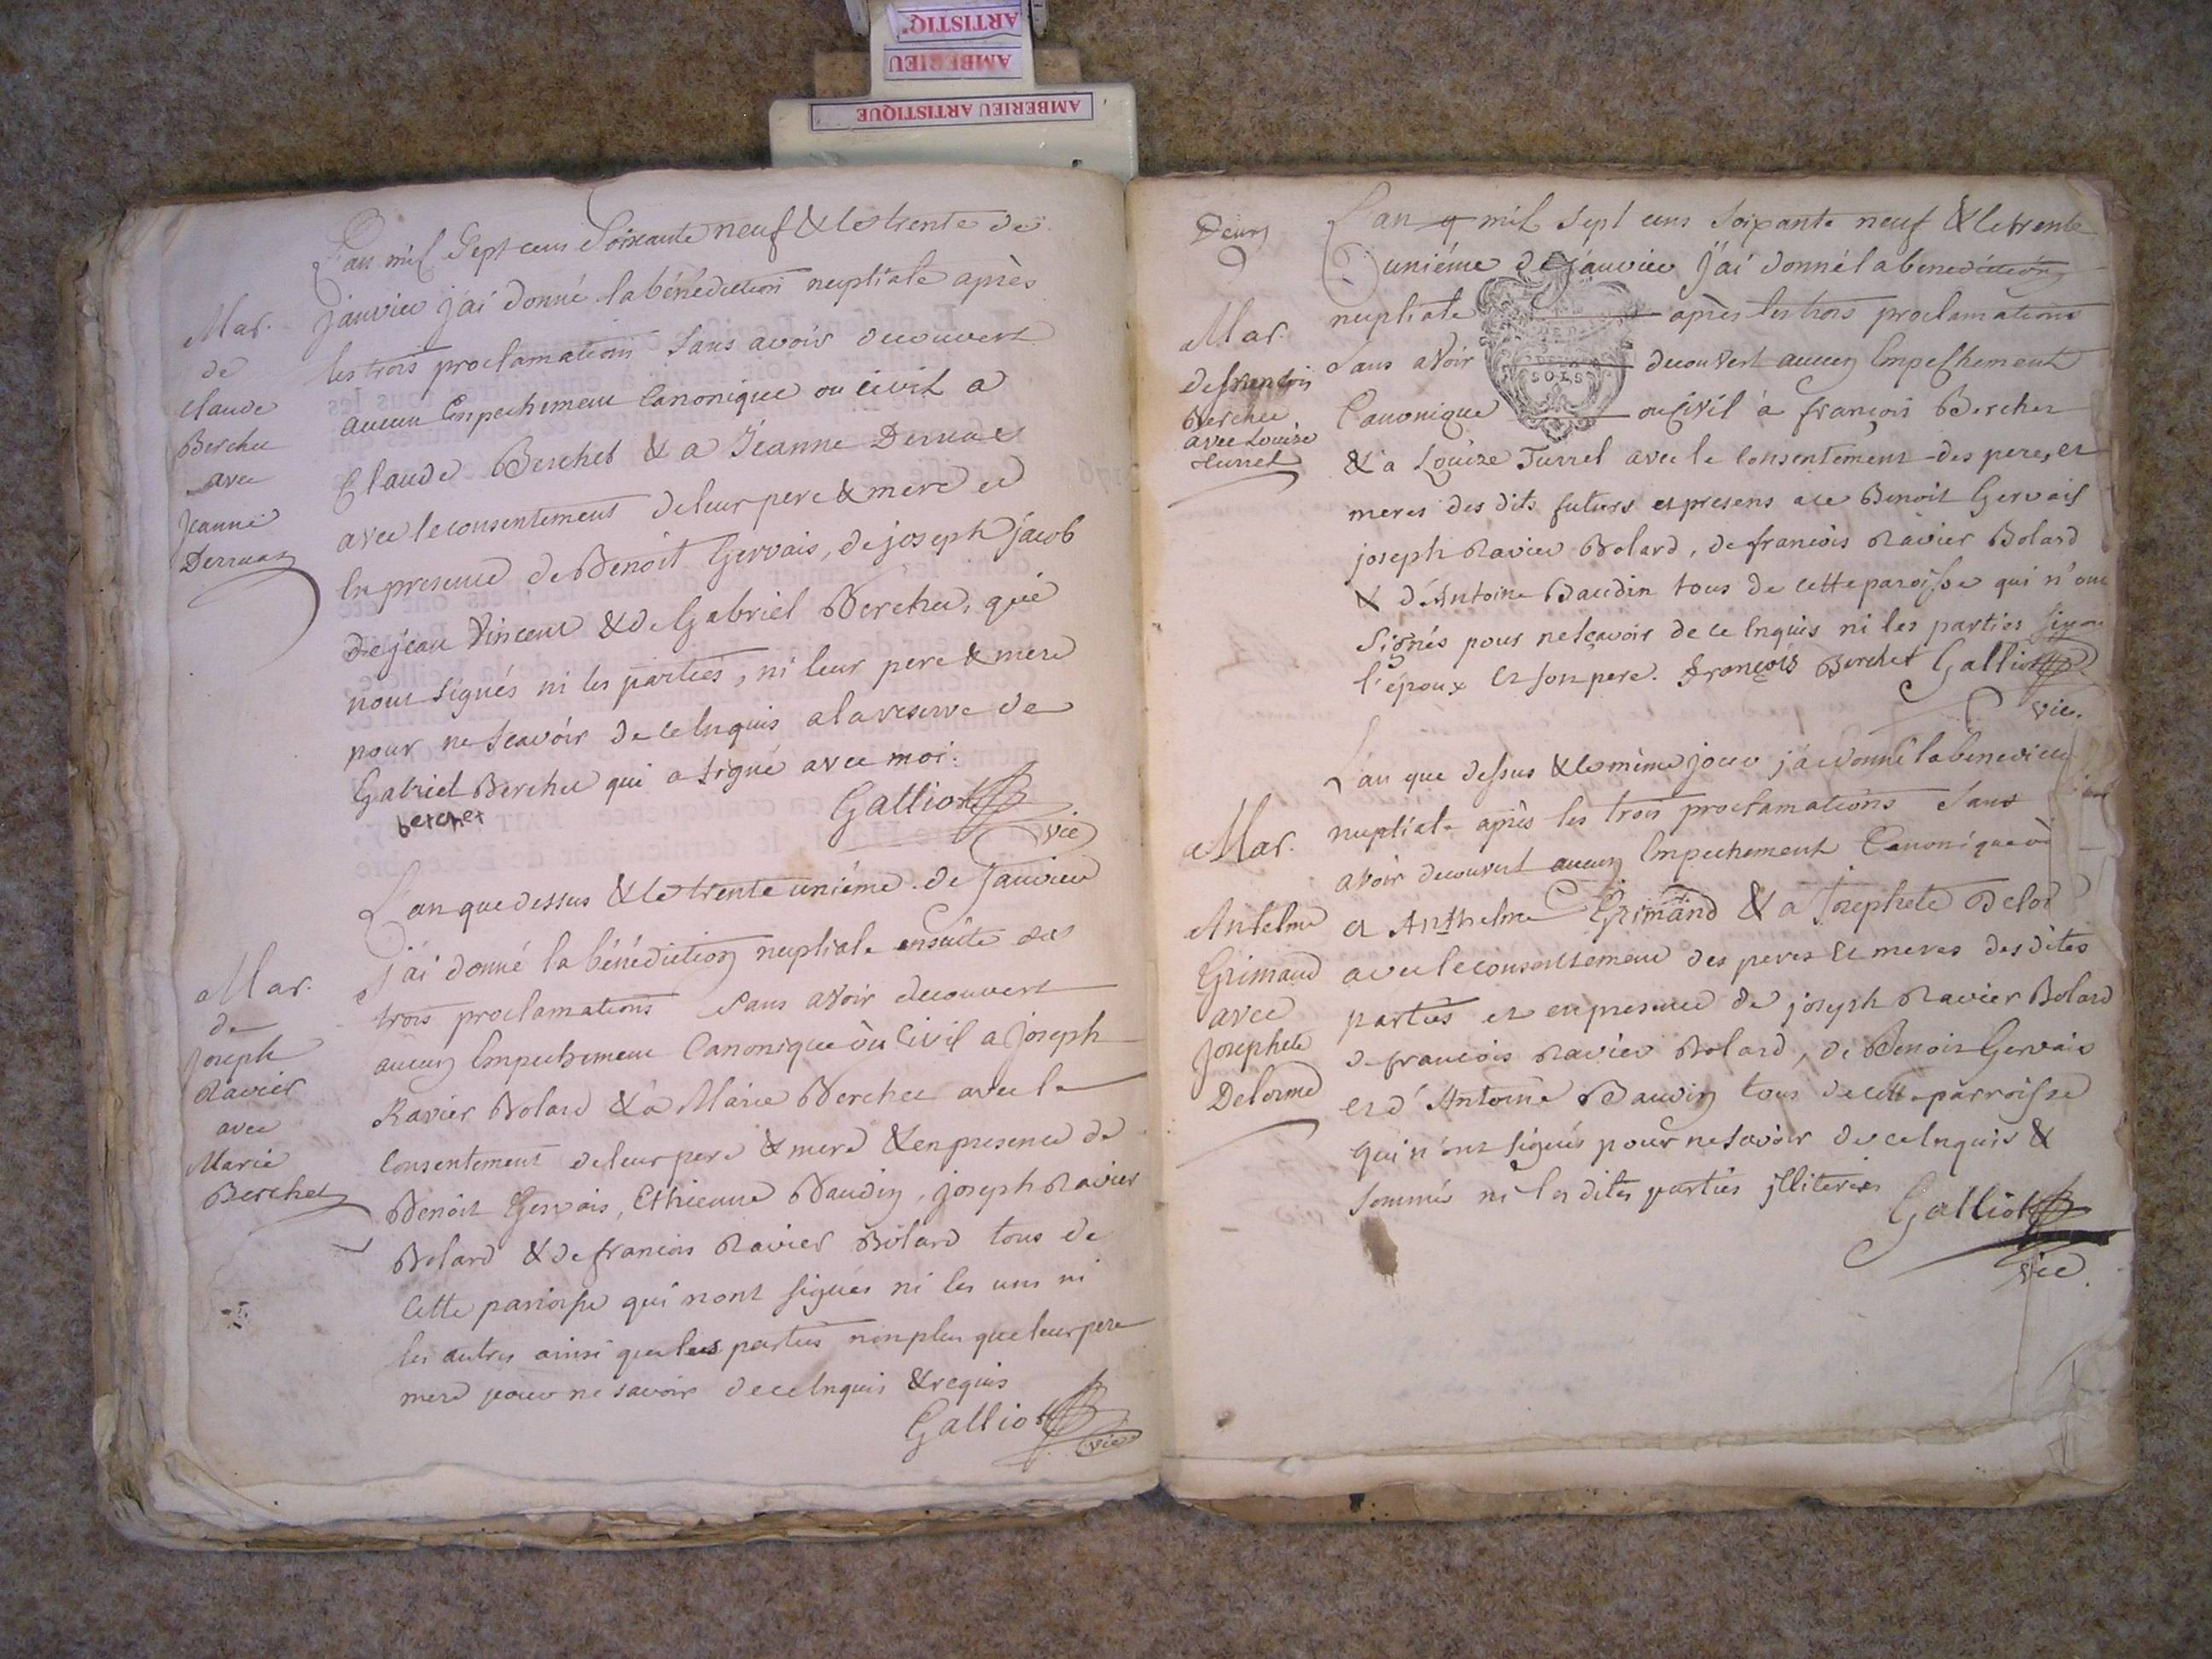 ARTISTIQ
AMBERIEU
AMBERIEU ARTISTIQUE
L'an mil Sept cens Soixante neuf & le trente de
janvier j'ai donné la bénédiction nuptiale après
les trois proclamations Sans avoir decouvert
aucun Empechement Canonique ou civil a
Claude Berchet & a Jeanne Derruaz
avec le consentement de leur pere & mere et
En presence de Benoit Gervais, de joseph jacob
de jean Vincent & de Gabriel Berchet, qui
n'ont signés ni les parties, ni leur pere & mere
pour ne Scavoir de ce Enquis a la reserve de
Gabriel Berchet qui a signé avec moi.
berchet
Galliot
vic
Mar.
de
Claude
Berchet
avec
Jeanne
Derruaz
L'an que dessus & le trente unième de Janvier
j'ai donné la bénédiction nuptiale ensuite des
trois proclamations Sans avoir decouvert
aucun Empechement Canonique òu Civil a joseph
Ravier Bolard & à Marie Berchet avec le
Consentement de leur pere & mere & en presence de
Benoit Gervais, Ethienne Baudin, joseph Ravier
Bolard & de francois Ravier Bolard tous de
Cette parroisse qui n'ont signés ni les uns ni
les autres ainsi que les parties non plus que leur pere
mere pour ne savoir de ce Enquis & requis
Galliot
vic
Mar.
de
Joseph
Ravier
avec
Marie
Berchet
Deux
L'an mil sept cens soixante neuf & le trente
unième de janvier J'ai donné la benediction
nuptiale après les trois proclamations
Sans avoir decouvert aucun Empeschement
Canonique ou Civil à françois Berchet
& a Louize Turrel avec le Consentement des peres et
meres des dits futurs et presens a ce Benoit Gervais
joseph Ravier Bolard, de francois Ravier Bolard
& d'Antoine Baudin tous de cette paroisse qui n'ont
Signés pour ne sçavoir de ce Enquis ni les parties sinon
l'époux et son pere. François Berchet Galliot
vic.
Mar.
de francois
Berchet
avec Louize
Turrel
L'an que dessus & le même jour j'ai donné la benedict
nuptiale après les trois proclamations Sans
avoir decouvert aucun Empechement Canonique où
a Anthelme Grimand & a Josephete Delor
avec le consentement des peres et meres des dites
parties et en presence de joseph Ravier Bolard
de francois Ravier Bolard, de Benoit Gervais
et d'Antoine Baudin tous de cette parroisse
qui n'ont signés pour ne savoir de ce Enquis &
Sommés ni les dites parties jlliterées
Galliot
vic.
Mar.
Antelme
Grimaud
avec
Josephete
Delorme
SOLS